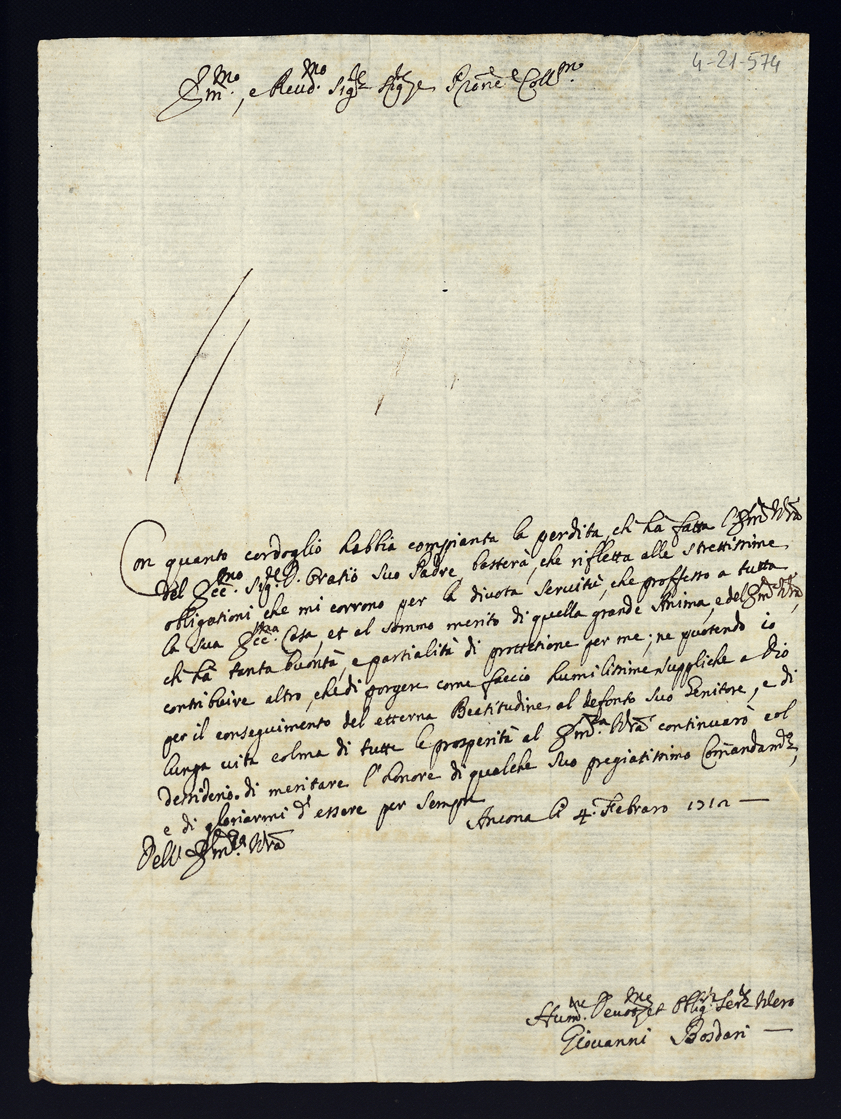 4-21-574
Ill.mo, e Reu.do Sig.re Sig.re e Prone Coll.mo
Con quanto cordoglio habbia compianta la perdita, ch'hà fatta l'Ill.ma Vra
del Ecc.mo Sig.r D. Oratio suo Padre, basterà, che rifletta alle strettissime
obligationi che mi corrono per la diuota seruitù, che professo a tutta
la sua Ecc.ma Casa, et al sommo merito di quella grande Anima, e del Ill.ma Vra,
ch'hà tanta buontà, e partialità di protetione per me; ne puotendo io
contribuire altro, che di porgere come faccio humilissime suppliche a Dio
per il conseguimento del etterna Beatitudine al defonto suo Genitore, e di
lunga uita colma di tutte le prosperità al Ill.ma Vra continuarò col
dessiderio di meritare l'honore di qualche suo pregiatissimo Comandam.to,
e di gloriarmi d'essere per sempre
Ancona li 4. Febraro 1712
Dell' Ill.ma Vra
Hum.mo Deuot.mo et Oblig.mo Ser.re Vero
Giouanni Bosdari